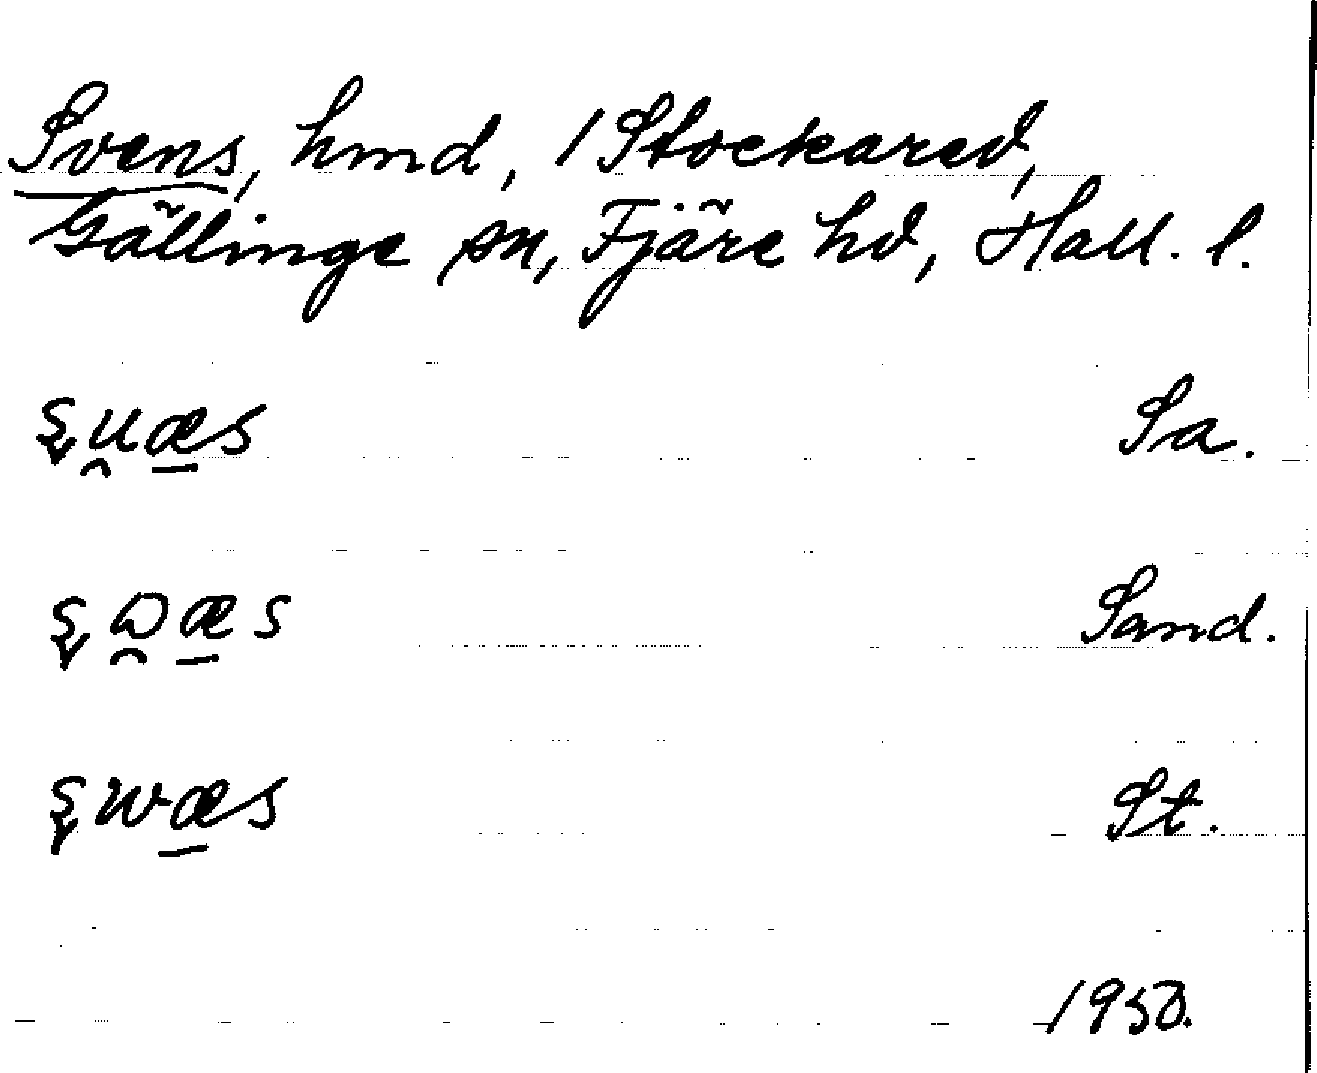 Svens, hmd, 1 Stockared,
Gällinge sn, Fjäre hd, Hall. l.
Sa.
Sand.
St.
1950.